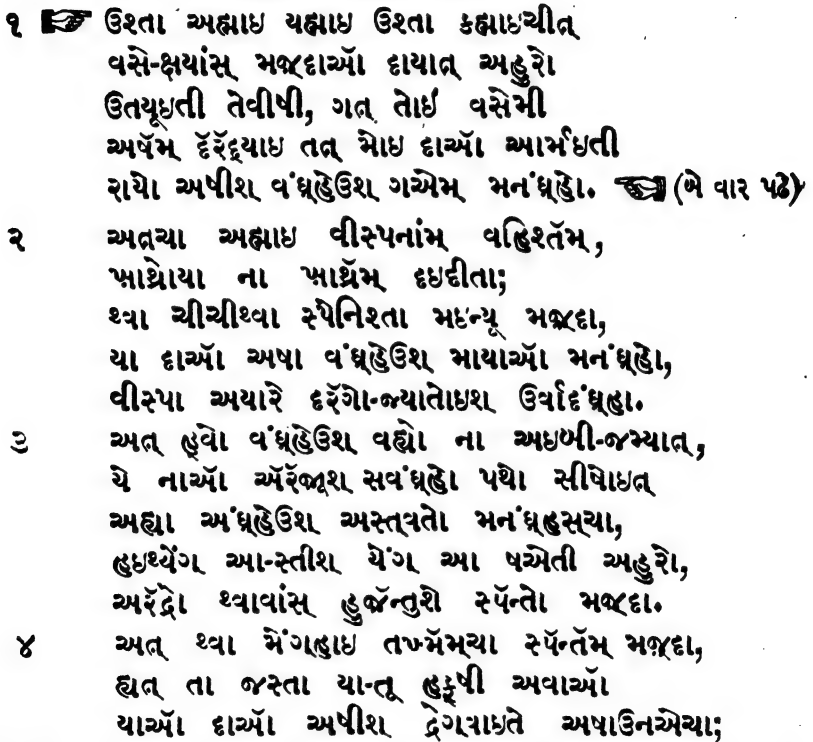 ૧ ☞ ઉશ્તા અહ્માઇ યહ્માઇ ઉશ્તા કહ્માઇચીત્
વસે-ક્ષયાંસ્ મજ઼્દાઑ દાયાત્ અહુરો
ઉતયૂઇતી તેવીષી, ગત્ તોઇ વસેમી
અષૅમ્ દૅરૅદ્રયાઇ તત્ મોઇ દાઑ આર્મઇતી
રાયો અષીશ વંઘ્રહેઉશ ગએમ્ મનંઘ્રહો. ☜ (બે વાર પઢે)
૨ અત્ચા અહ્માઇ વીસ્પનાંમ્ વહિશ્તૅમ્,
ખાથ્રોયા ના ખાથ્રૅમ્ દઇદીતા;
થ્વા ચીચીથ્વા સ્પૅનિશ્તા મઇન્યૂ મજ઼્દા,
યા દાઑ અષા વંઘ્રહેઉશ માયાઑ મનંઘ્રહો,
વીસ્પા અયારે દરૅગો-જ્યાતોઇશ ઉર્વાદંઘ્રહા.
૩ અત્ હ્વો વંઘ્રહેઉશ વહ્યો ના અઇબી-જમ્યાત્,
યે નાઑ ઍરૅજ઼ૂશ સવંઘ્રહો પથો સીષોઇત્
અહ્યા અંઘ્રહેઉશ અસ્ત્વતો મનંઘ્રહસ્ચા,
હઇથ્યેંગ્ આ-સ્તીશ યેંગ્ આ ષએતી અહુરો,
અરૅદ્રો થ્વાવાંસ્ હુજ઼ૅન્તુશે સ્પૅન્તો મજ઼્દા.
૪ અત્ થ્વા મેંગ્હાઇ તખ્મૅમ્ચા સ્પૅન્તૅમ્ મજ઼્દા,
હ્યત્ તા જ઼સ્તા યા-તૂ હફ્ષી અવાઑ
યાઑ દાઑ અષીશ દ્રેગ્વાઇતે અષાઉનએચા;